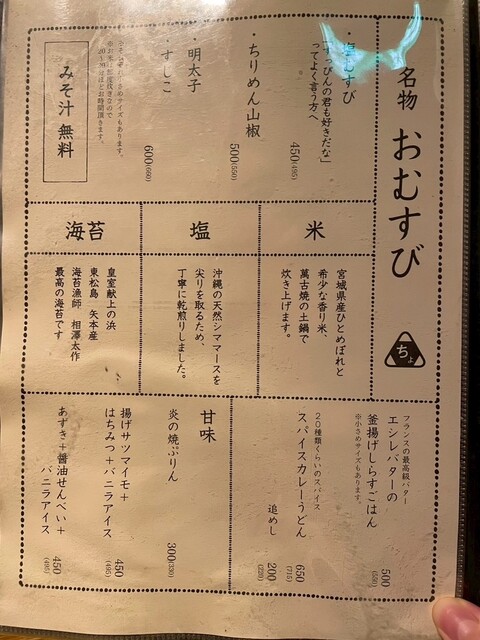 名物 おむすび
ちょ
・塩むすび
「すっぴんの君も好きだな」
ってよく言う方へ
450(495)
・ちりめん山椒
500(550)
・明太子
・すじこ
600(660)
※それぞれ小さめサイズもあります。
20〜30分ほどお時間頂きます。
みそ汁 無料
米
宮城県産ひとめぼれと
希少な香り米、
萬古焼の土鍋で
炊き上げます。
塩
沖縄の天然シママースを
尖りを取るため、
丁寧に乾煎りしました。
海苔
皇室献上の浜
東松島 矢本産
海苔漁師 相澤太作
最高の海苔です
フランスの最高級バター
エシレバターの
釜揚げしらすごはん
※小さめサイズもあります。
500(550)
20種類くらいのスパイス
スパイスカレーうどん
650(715)
追めし
200(220)
甘味
炎の焼ぷりん
300(330)
揚げサツマイモ+
はちみつ+バニラアイス
450(495)
あずき+醤油せんべい+
バニラアイス
450(495)